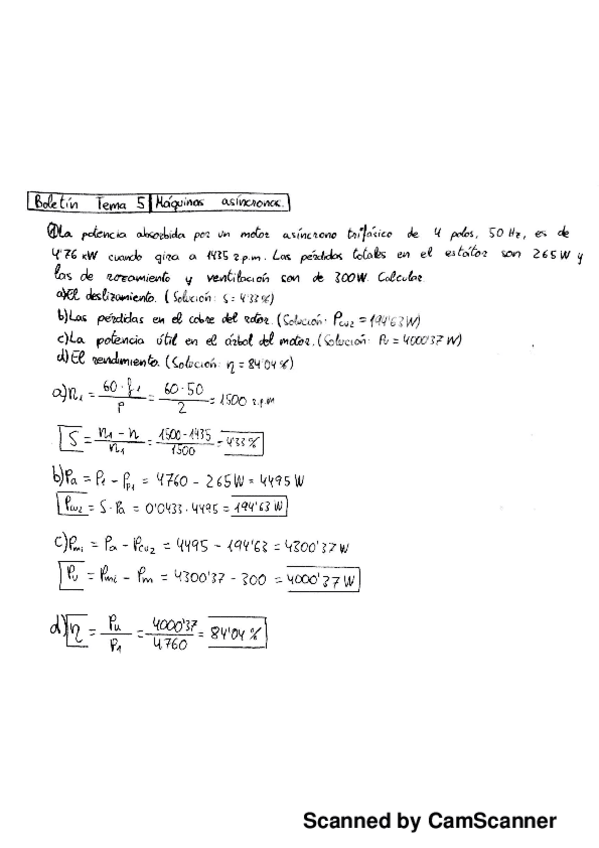 Boletín Tema 5 Máquinas asíncronas.
①La potencia absorbida por un motor asíncrono trifásico de 4 polos, 50 Hz, es de
4'76 kW cuando gira a 1435 r.p.m. Las pérdidas totales en el estátor son 265 W y
las de rozamiento y ventilación son de 300W. Calcular
a)El deslizamiento. (Solución: S = 4'33%)
b)Las pérdidas en el cobre del rotor. (Solución: Pcu2 = 194'63 W)
c)La potencia útil en el árbol del motor. (Solución: Pu = 4000'37 W)
d)El rendimiento. (Solución: η = 84'04 %)
a)n1 = 60·f1 / P = 60·50 / 2 = 1500 r.p.m
S = n1 - n / n1 = 1500-1435 / 1500 = 4'33 %
b)Pa = P1 - Pp1 = 4760 - 265W = 4495 W
Pcu2 = S·Pa = 0'0433·4495 = 194'63 W
c)Pmi = Pa - Pcu2 = 4495 - 194'63 = 4300'37 W
Pu = Pmi - Pm = 4300'37 - 300 = 4000'37 W
d)η = Pu / P1 = 4000'37 / 4760 = 84'04 %
Scanned by CamScanner